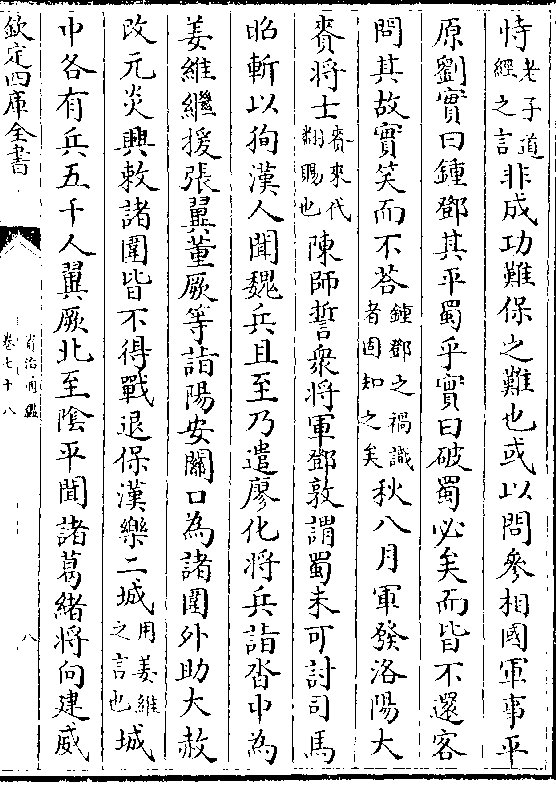 恃老子道經之言非成功難保之難也或以問參相國軍事平
原劉實曰鍾鄧其平蜀乎實曰破蜀必矣而皆不還客
問其故實笑而不答鍾鄧之禍識者固知之矣秋八月軍發洛陽大
賚將士賚來代翻賜也陳師誓衆將軍鄧敦謂蜀未可討司馬
昭斬以狥漢人聞魏兵且至乃遣廖化將兵詣沓中為
姜維繼援張翼董厥等詣陽安關口為諸圍外助大赦
改元炎興敕諸圍皆不得戰退保漢樂二城用姜維之言也城
中各有兵五千人翼厥北至隂平聞諸葛緒將向建威
欽定四庫全書
資治通鑑
卷七十八
八